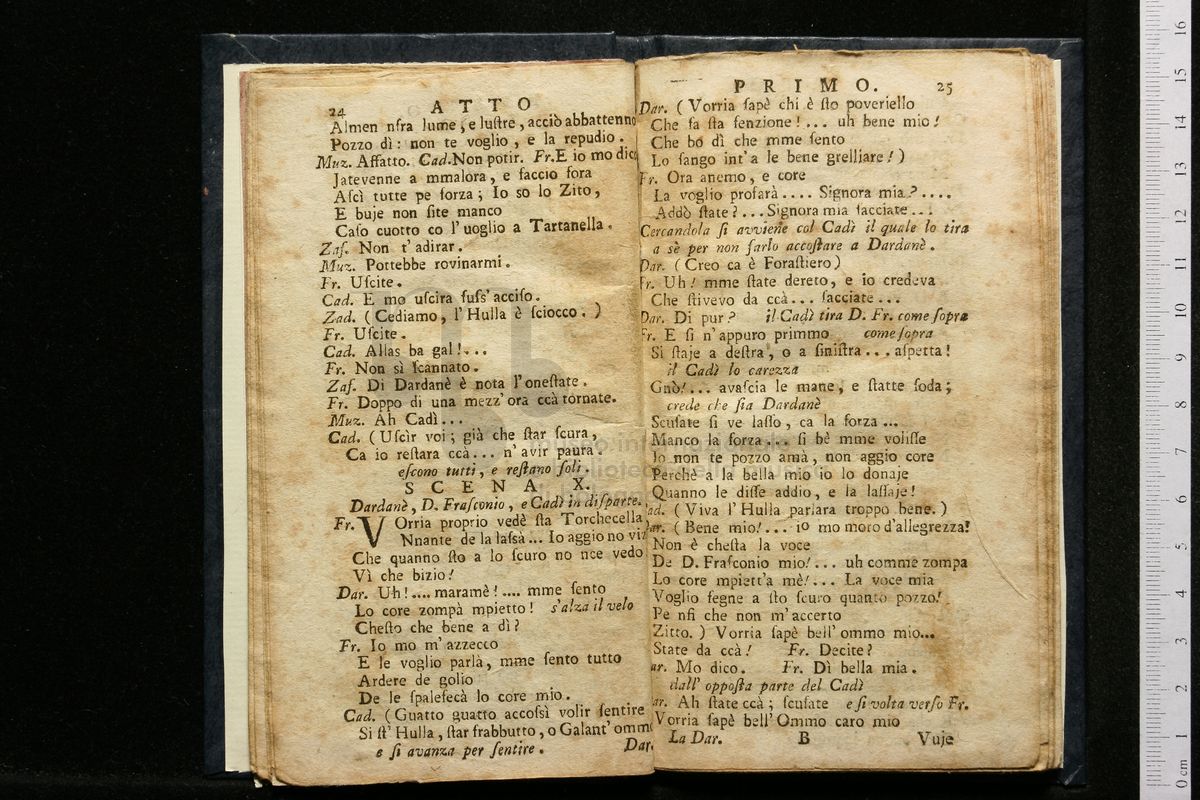 24 ATTO
Almen nſra lume, e luſtre, acciò abbattenno
Pozzo dì: non te voglio, e la repudio.
Muz. Affatto. Cad. Non potir. Fr. E io mo dico
Jatevenne a mmalora, e faccio fora
Aſcì tutte pe forza; Io so lo Zito,
E buje non ſite manco
Caſo cuotto co l'uoglio a Tartanella.
Zaſ. Non t'adirar.
Muz. Pottebbe rovinarmi.
Fr. Uſcite.
Cad. E mo uſcira fuſs'acciſo.
Zad. (Cediamo, l'Hulla è ſciocco.)
Fr. Uſcite.
Cad. Allas ba gal!...
Fr. Non sì ſcannato.
Zaſ. Di Dardanè è nota l'oneſtate.
Fr. Doppo di una mezz'ora ccà tornate.
Muz. Ah Cadì...
Cad. (Uſcìr voi; già che ſtar ſcura,
Ca io reſtara ccà... n'avir paura.
eſcono tutti, e reſtano ſoli.
SCENA X.
Dardanè, D. Fraſconio, e Cadì in diſparte.
Fr. VOrria proprio vedè ſta Torchecella
Nnante de la laſsà... Io aggio no viz
Che quanno ſto a lo ſcuro no nce vedo
Vì che bizio!
Dar. Uh!.... maramè!.... mme ſento
Lo core zompà mpietto! s'alza il velo
Cheſto che bene a dì?
Fr. Io mo m'azzecco
E le voglio parlà, mme ſento tutto
Ardere de golio
De le ſpaleſecà lo core mio.
Cad. (Guatto guatto accoſsì volir ſentire
Si ſt'Hulla, ſtar frabbutto, o Galant'omm
e ſi avanza per ſentire. Dar.
PRIMO. 25
Dar. (Vorria ſapè chi è ſto poveriello
Che fa ſta ſenzione!... uh bene mio!
Che bò dì che mme ſento
Lo ſango int'a le bene grelliare!)
Fr. Ora anemo, e core
La voglio profarà.... Signora mia?....
Addò ſtate?... Signora mia facciate...
Cercandola ſi avviene col Cadì il quale lo tira
a sè per non farlo accoſtare a Dardanè.
Dar. (Creo ca è Foraſtiero)
Fr. Uh! mme ſtate dereto, e io credeva
Che ſtivevo da ccà... facciate...
Dar. Di pur? il Cadì tira D. Fr. come ſopra
Fr. E ſi n'appuro primmo come ſopra
Si ſtaje a deſtra, o a ſiniſtra... aſpetta!
il Cadì lo carezza
Gnò!... avaſcia le mane, e ſtatte ſoda;
crede che ſia Dardanè
Scuſate ſi ve laſſo, ca la forza...
Manco la forza... ſi bè mme voliſſe
Io non te pozzo amà, non aggio core
Perchè a la bella mio io lo donaje
Quanno le diſſe addio, e la laſſaje!
Cad. (Viva l'Hulla parlara troppo bene.)
Dar. (Bene mio!... io mo moro d'allegrezza!
Non è cheſta la voce
De D. Fraſconio mio!... uh comme zompa
Lo core mpiett'a mè!... La voce mia
Voglio fegne a ſto ſcuro quanto pozzo!
Pe nfi che non m'accerto
Zitto.) Vorria ſapè bell'ommo mio...
State da ccà! Fr. Decite?
ar. Mo dico. Fr. Dì bella mia.
dall'oppoſta parte del Cadì
ar. Ah ſtate ccà; ſcuſate e ſi volta verſo Fr.
Vorria ſapè bell'Ommo caro mio
La Dar. B Vuje